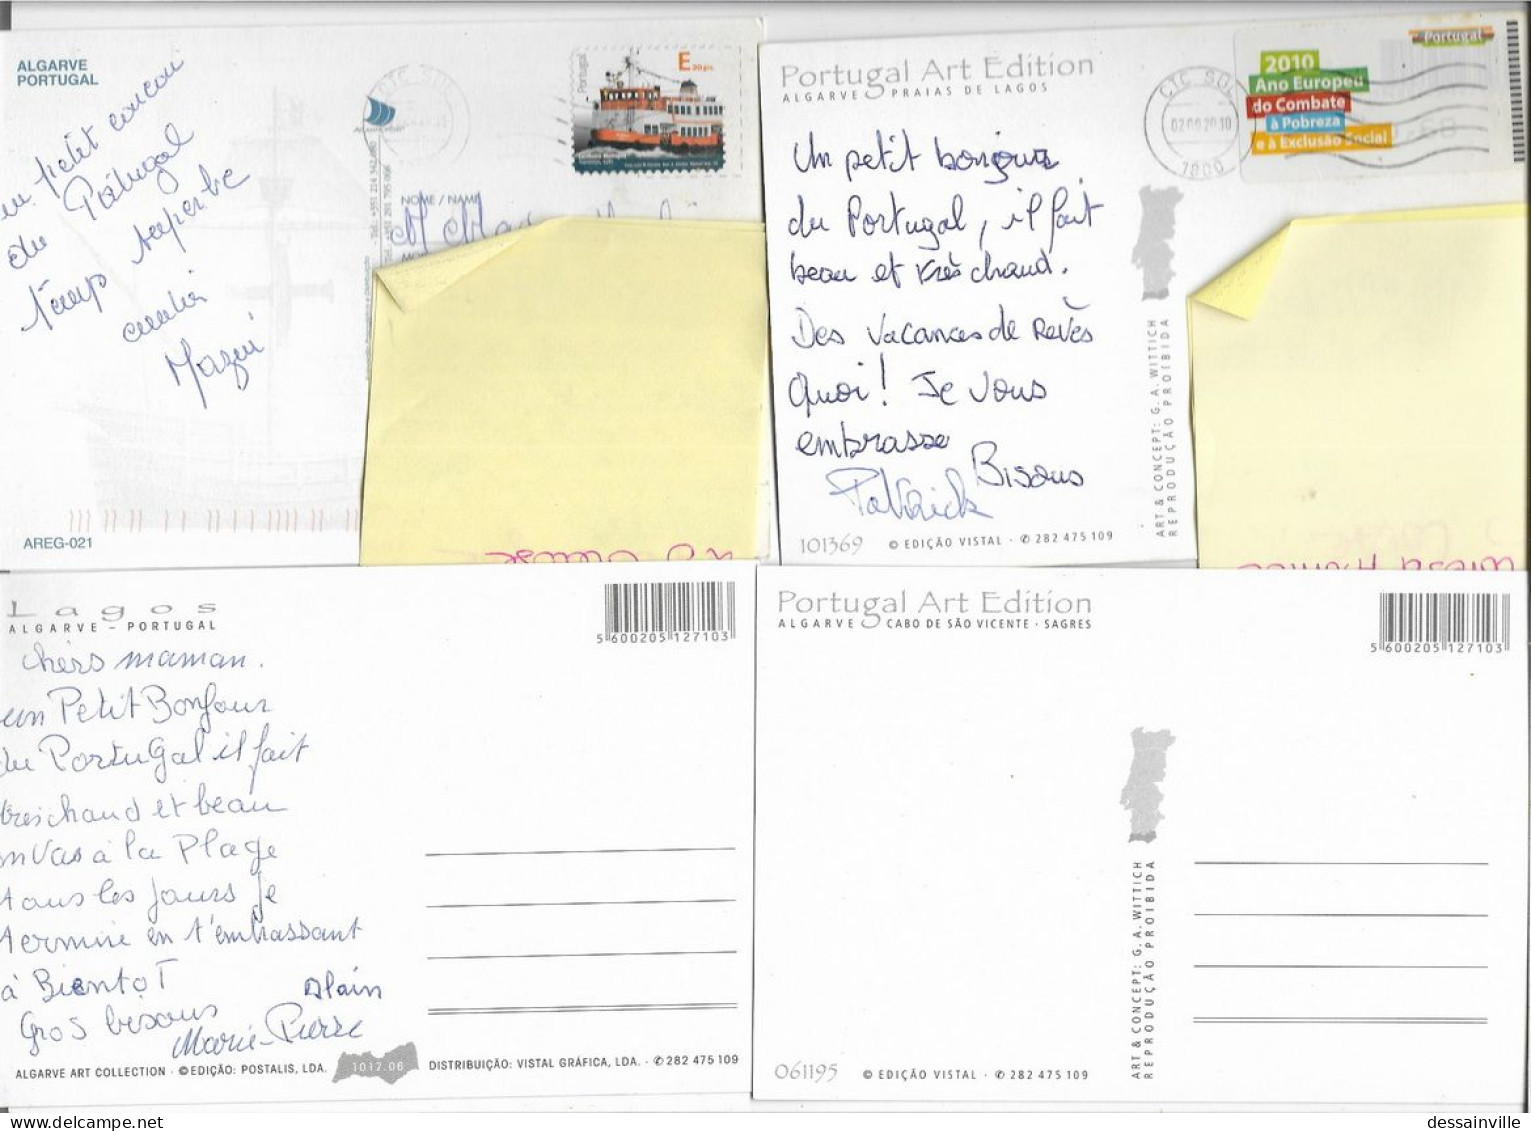 ALGARVE
PORTUGAL
un petit coucou
du Pôtugal
temps superbe
Mazui
CTC SUL
Portugal
E20grs.
NOME / NAME
AREG-021
Portugal Art Edition
ALGARVE PRAIAS DE LAGOS
CTC SUL
1800
Portugal
2010
Ano Europeu
do Combate
à Pobreza
e à Exclusão Social
Un petit bonjour
du Portugal, il fait
beau et très chaud.
Des vacances de rêves
Quoi! Je vous
embrasse
Bisous
Patrick
101369
© EDIÇÃO VISTAL · ✆ 282 475 109
ART & CONCEPT: G. A. WITTICH
REPRODUÇÃO PROIBIDA
Lagos
ALGARVE - PORTUGAL
5 600205 127103
chèrs maman.
un Petit Bonjour
du PortuGal il fait
treschaud et beau
on Vas à la Plage
tous les jours je
termine en t'embrassant
à BientoT
Alain
Gros bisous
Marie-Pierre
ALGARVE ART COLLECTION · © EDIÇÃO: POSTALIS, LDA.
1017.06
DISTRIBUIÇÃO: VISTAL GRÁFICA, LDA. · ✆ 282 475 109
Portugal Art Edition
ALGARVE CABO DE SÃO VICENTE · SAGRES
5 600205 127103
ART & CONCEPT: G. A. WITTICH
REPRODUÇÃO PROIBIDA
061195
© EDIÇÃO VISTAL · ✆ 282 475 109
dessainville